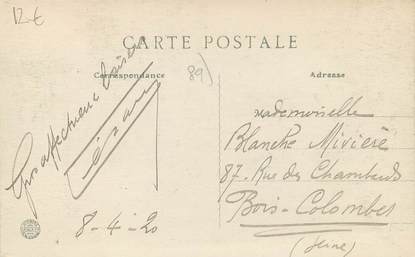 12€
CARTE POSTALE
Correspondance
89)
Adresse
Gros affectueux baisers
8-4-20
Mademoiselle
Blanche Mivière
87. Rue des Chambards
Bois-Colombes
(Seine)